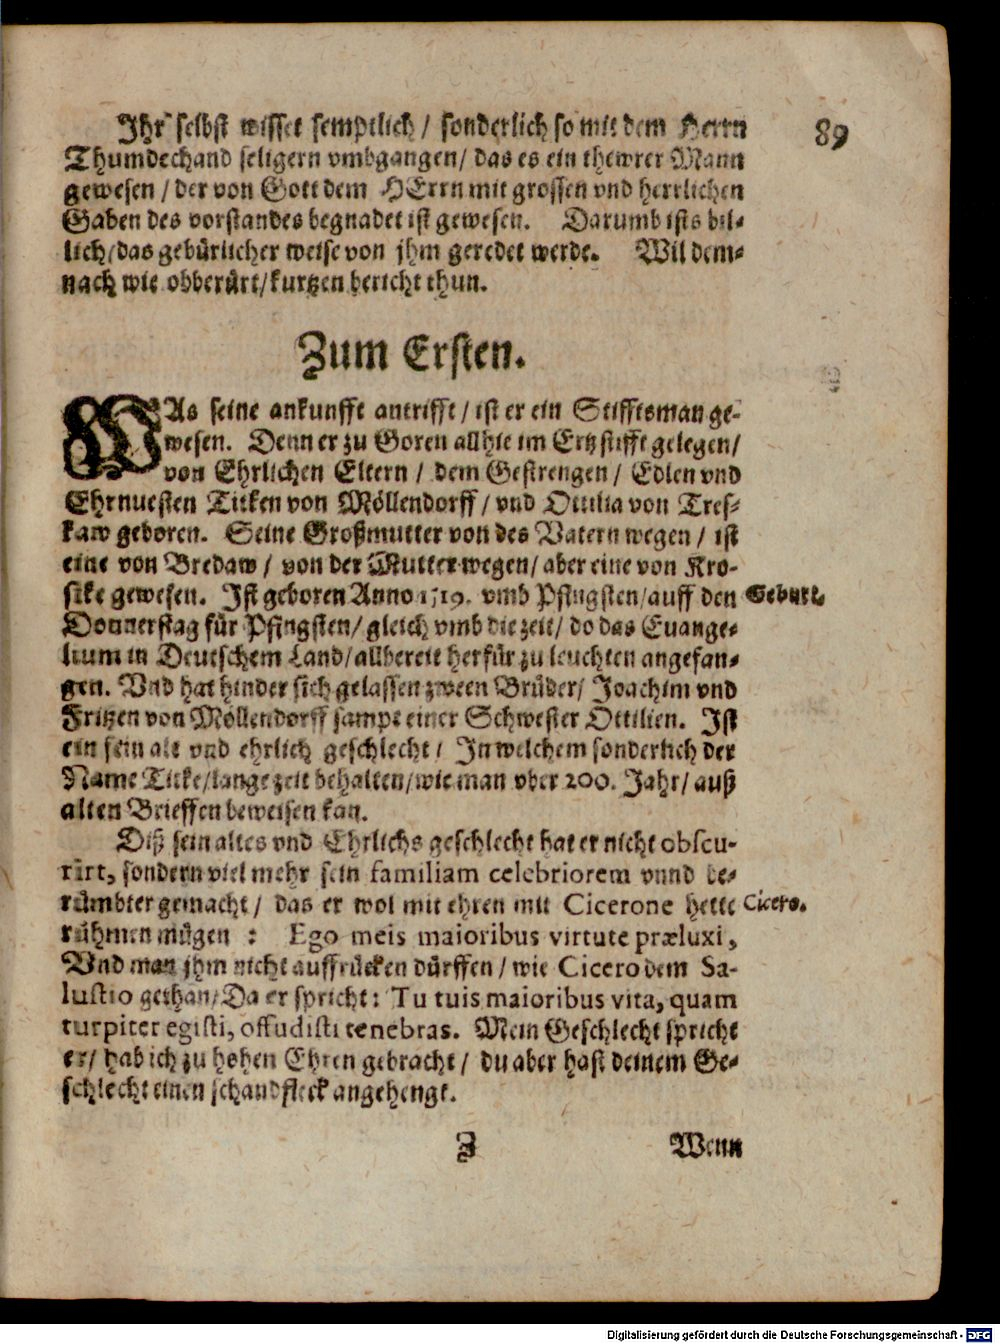 89
Ihr selbst wisset semptlich / sonderlich so mit dem Herrn
Thumdechand seligern vmbgangen / das es ein thewrer Mann
gewesen / der von Gott dem HErrn mit grossen vnd herrlichen
Gaben des vorstandes begnadet ist gewesen. Darumb ists bil-
lich / das gebürlicher weise von jhm geredet werde. Wil dem-
nach wie obberürt / kurtzen bericht thun.
Zum Ersten.
WAs seine ankunfft antrifft / ist er ein Stifftsman ge-
wesen. Denn er zu Goren allhie im Ertzstifft gelegen /
von Ehrlichen Eltern / dem Gestrengen / Edlen vnd
Ehrnuesten Titken von Möllendorff / vnd Ottilia von Tres-
kaw geboren. Seine Großmutter von des Vatern wegen / ist
eine von Bredaw / von der Mutter wegen / aber eine von Kro-
sike gewesen. Ist geboren Anno 1519. vmb Pfingsten / auff den
Geburt.
Donnerstag für Pfingsten / gleich vmb die zeit / do das Euange-
lium in Deutschem Land / allbereit herfür zu leuchten angefan-
gen. Vnd hat hinder sich gelassen zween Brüder / Joachim vnd
Fritzen von Möllendorff sampt einer Schwester Ottilien. Ist
ein fein alt vnd ehrlich geschlecht / In welchem sonderlich der
Name Titke / lange zeit behalten / wie man vber 200. Jahr / auß
alten Brieffen beweisen kan.
Diß sein altes vnd Ehrlichs geschlecht hat er nicht obscu-
rirt, sondern viel mehr sein familiam celebriorem vnnd be-
rümbter gemacht / das er wol mit ehren mit Cicerone hette
Cicero.
rühmen mügen : Ego meis maioribus virtute præluxi,
Vnd man jhm nicht auffrücken dürffen / wie Cicero dem Sa-
lustio gethan / Da er spricht : Tu tuis maioribus vita, quam
turpiter egisti, offudisti tenebras. Mein Geschlecht spricht
er / hab ich zu hohen Ehren gebracht / du aber hast deinem Ge-
schlecht einen schandfleck angehengt.
Z
Wenn
Digitalisierung gefördert durch die Deutsche Forschungsgemeinschaft - DFG